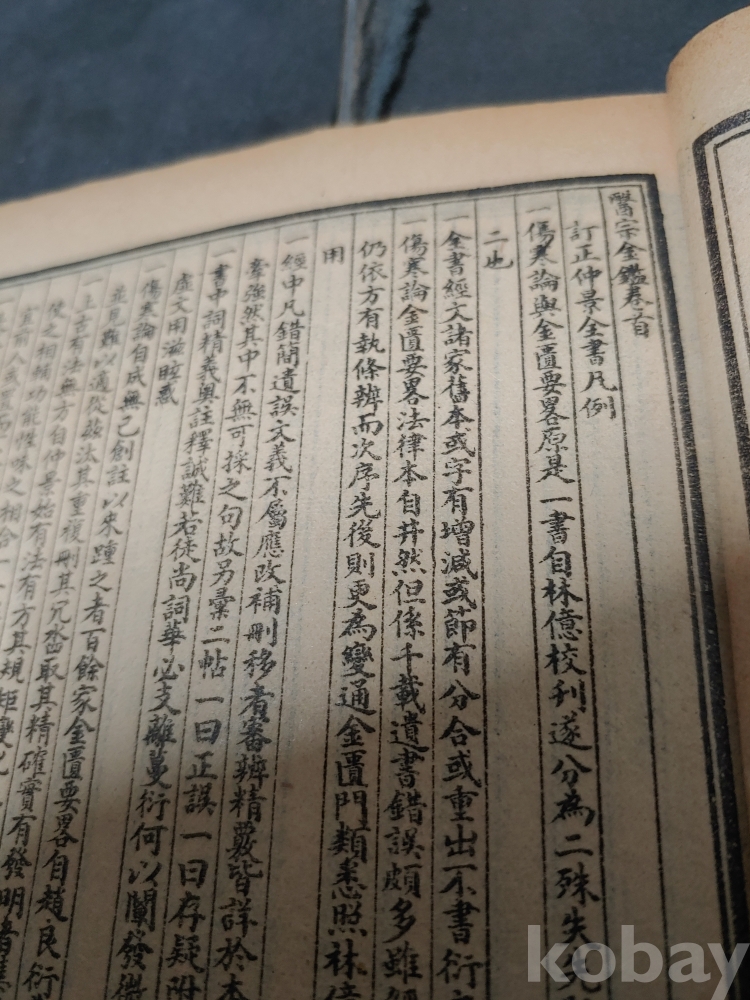 醫宗金鑑卷首
訂正仲景全書凡例
一傷寒論與金匱要畧原是一書自林億校刋遂分為二殊失先
二也
一全書經文諸家舊本或字有增減或節有分合或重出不書衍文
一傷寒論金匱要畧法律本自井然但係千載遺書錯誤頗多雖經
仍依方有執條辨而次序先後則更為變通金匱門類悉照林億
用
一經中凡錯簡遺誤文義不屬應改補刪移者審辨精覈皆詳於本
牽強然其中不無可採之句故另彙二帖一曰正誤一曰存疑附
一書中詞精義奧註釋誠難若徒尚詞華必支離蔓衍何以闡發微
虛文用滋眩惑
一傷寒論自成無己創註以來踵之者百餘家金匱要畧自趙良衍
並見難適從茲汰其重複刪其冗沓取其精確實有發明者集
一上古有法無方自仲景始有法有方其規矩變化
使之相輔功能性味之相合一
kobay